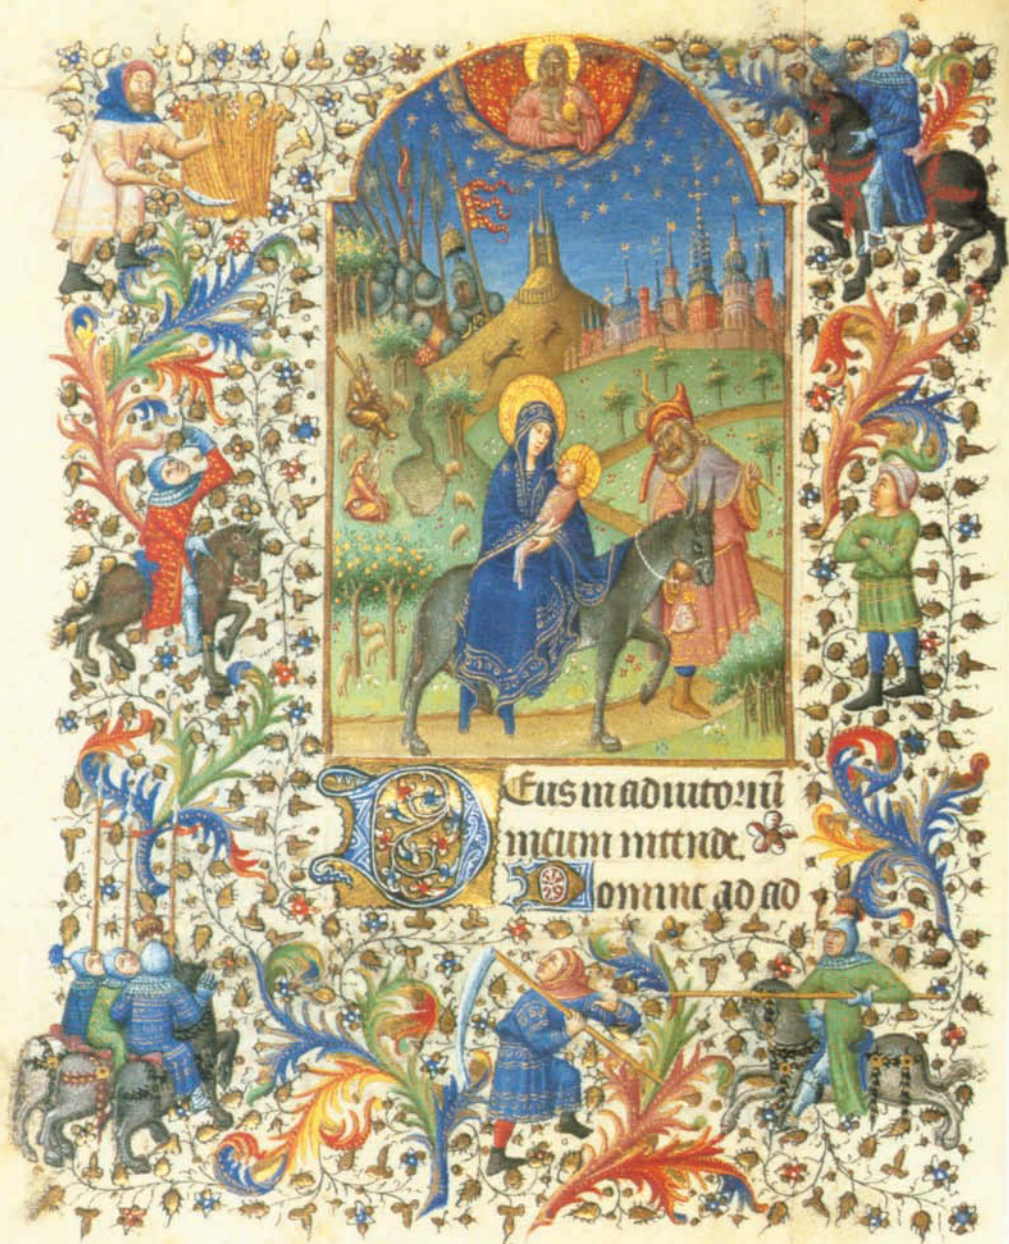 DEus in adiutoriū
meum intende.
Domine ad ad